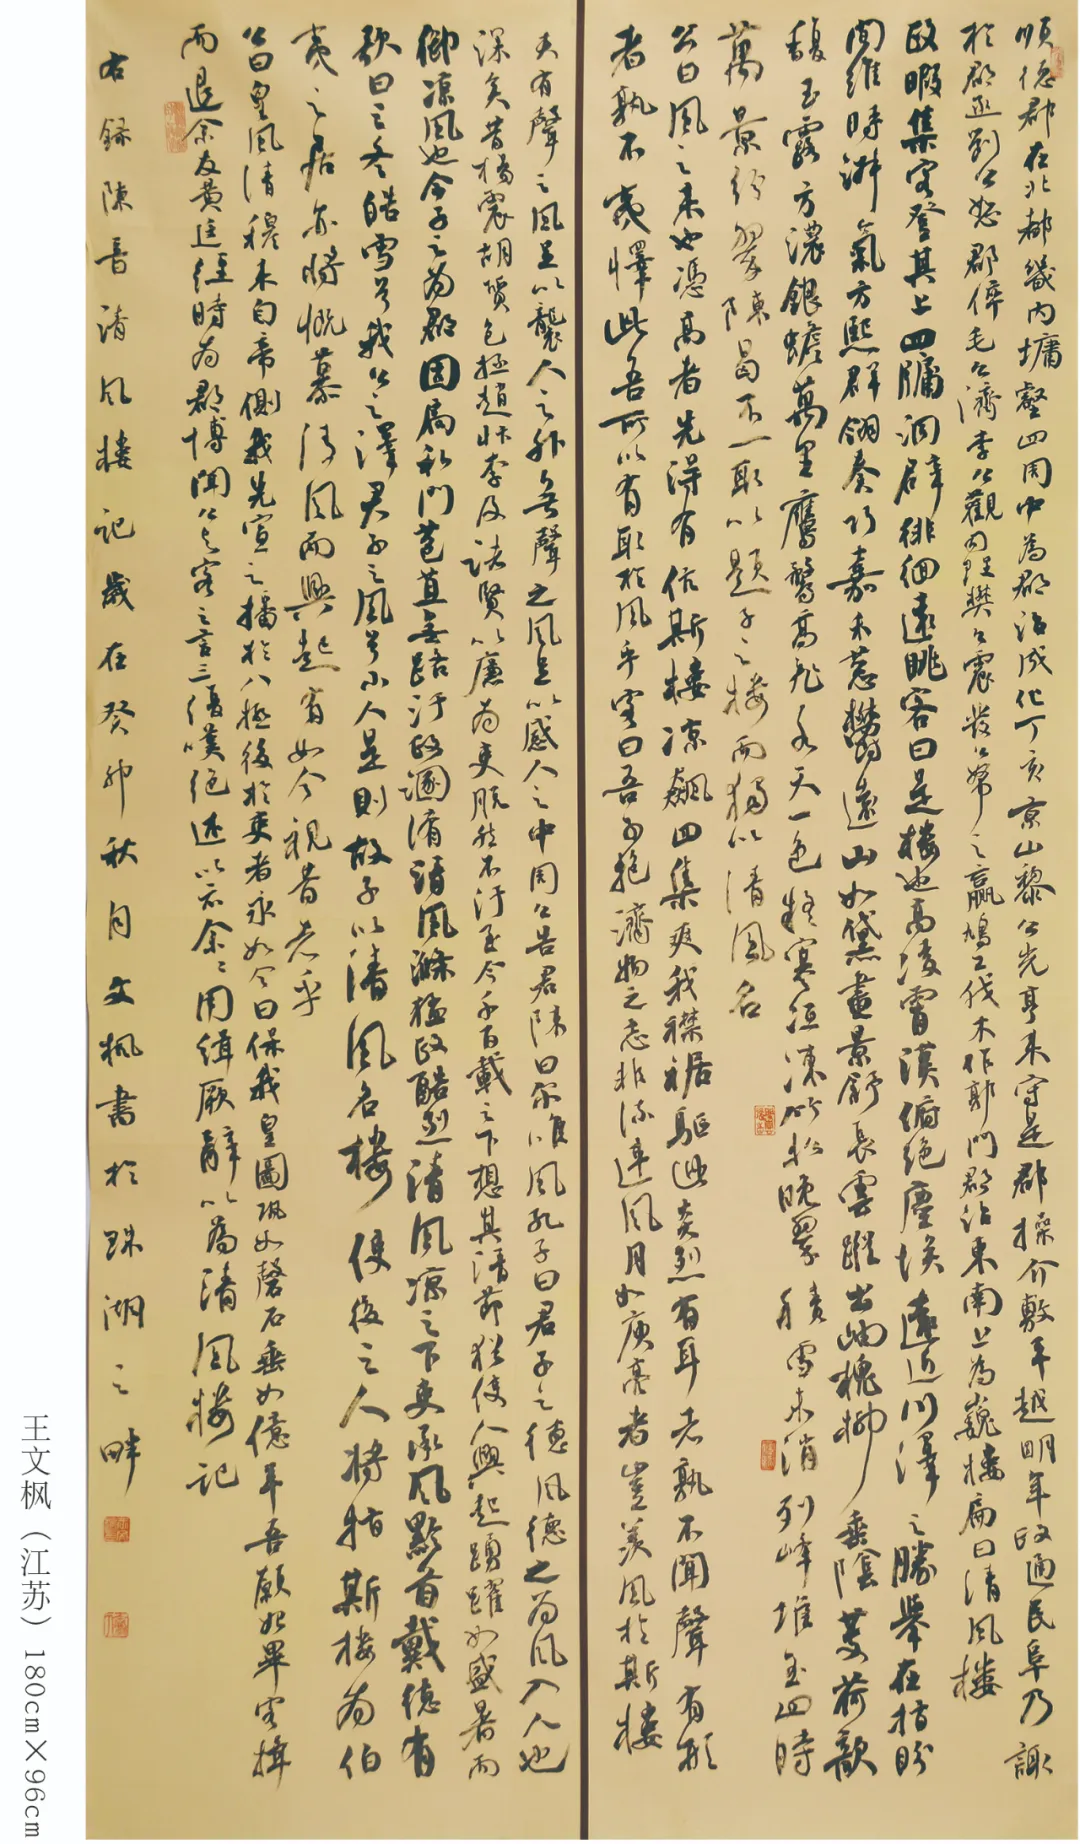 順德郡在北都畿内墉壑四周中為郡治成化丁亥京山黎公光亨来守是郡操介敷平越明年政通民阜乃諏
於郡丞劉公恕郡倅毛公濟李公觀節理樊公震發公帑之贏鳩工伐木作郭門郡治東南上為巍樓扁曰清風樓
政暇集客登其上四牖洞辟徘徊遠眺客曰是樓也高凌霄漢俯絶塵埃遠近川澤之勝舉在指盼
間維時淋氣方熙群翎奏巧嘉禾葱欎遠山如黛晝景舒長雲蹤出岫槐柳垂陰芰荷歆
馥玉露方濃銀蟾萬里鷹鶩高飛水天一色嚴寒沍凍竹松晚翠積雪未消列峰堆玉四時
萬景紛翠陳曷不一取以題子之樓而獨以清風名
公曰風之来也憑高者先得有伉斯樓凉飆四集爽我襟裾驅逝炎烈有耳者孰不聞聲有形
者孰不爽懌此吾所以有取於風乎客曰吾子抱濟物之志非流連風月如庾亮者豈羨風於斯樓
夫有聲之風足以襲人之外無聲之風足以感人之中周公告君陳曰尔惟風孔子曰君子之德風德之為風入人也
深矣昔楊震胡質包拯趙抃李及諸賢以廉為吏脱然不汙至今千百載之下想其清節猶使人興起踴躍如盛暑而
御凉風也今子之為郡固扃私門苞苴無路汙政湔滌清風滌猛政酷烈清風凉之下吏承風黔首戴德有
歌曰之冬皓雪兮我公之澤君子之風兮小人是則故子以清風名樓使後之人將指斯樓為伯
夷之居亦將慨慕清風而興起有如今視昔者乎
公曰皇風清穆来自帝側我先宣之播於八極後於吏者永如今日保我皇圖巩如磬石垂如億年吾願始畢客揖
而退余友黄廷經時為郡博聞公與客之言三復嘆绝述以示余余用緝厥辭以為清風樓記
右録陳音清風樓記歲在癸卯秋月文楓書於珠湖之畔
王文枫（江苏）180cm×96cm